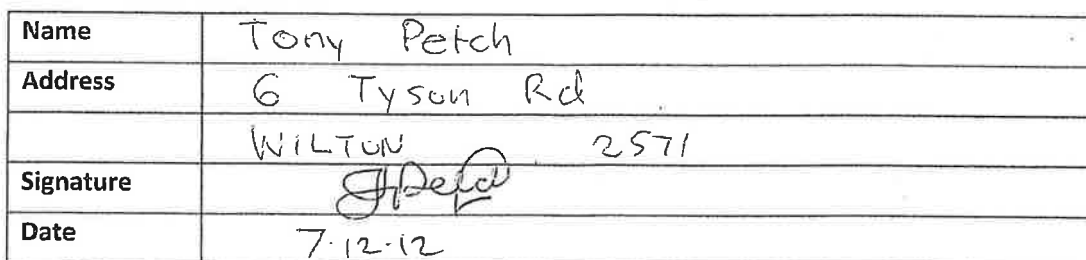 Name Tony Petch
Address 6 Tyson Rd
WILTON 2571
Signature
Date 7.12.12